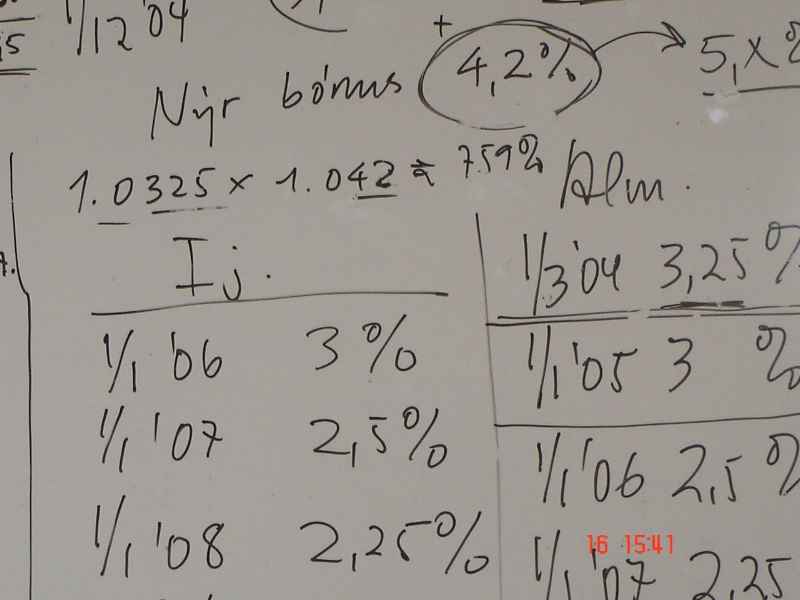 1/12 '04
+
4,2%
5,x%
Nýr bónus
1.0325 x 1.042 = 7.59%
Alm.
Ij.
1/3 '04 3,25%
1/1 '06 3%
1/1 '05 3 %
1/1 '07 2,5%
1/1 '06 2,5%
1/1 '08 2,25%
1/1 '07 2,25
16 15:41